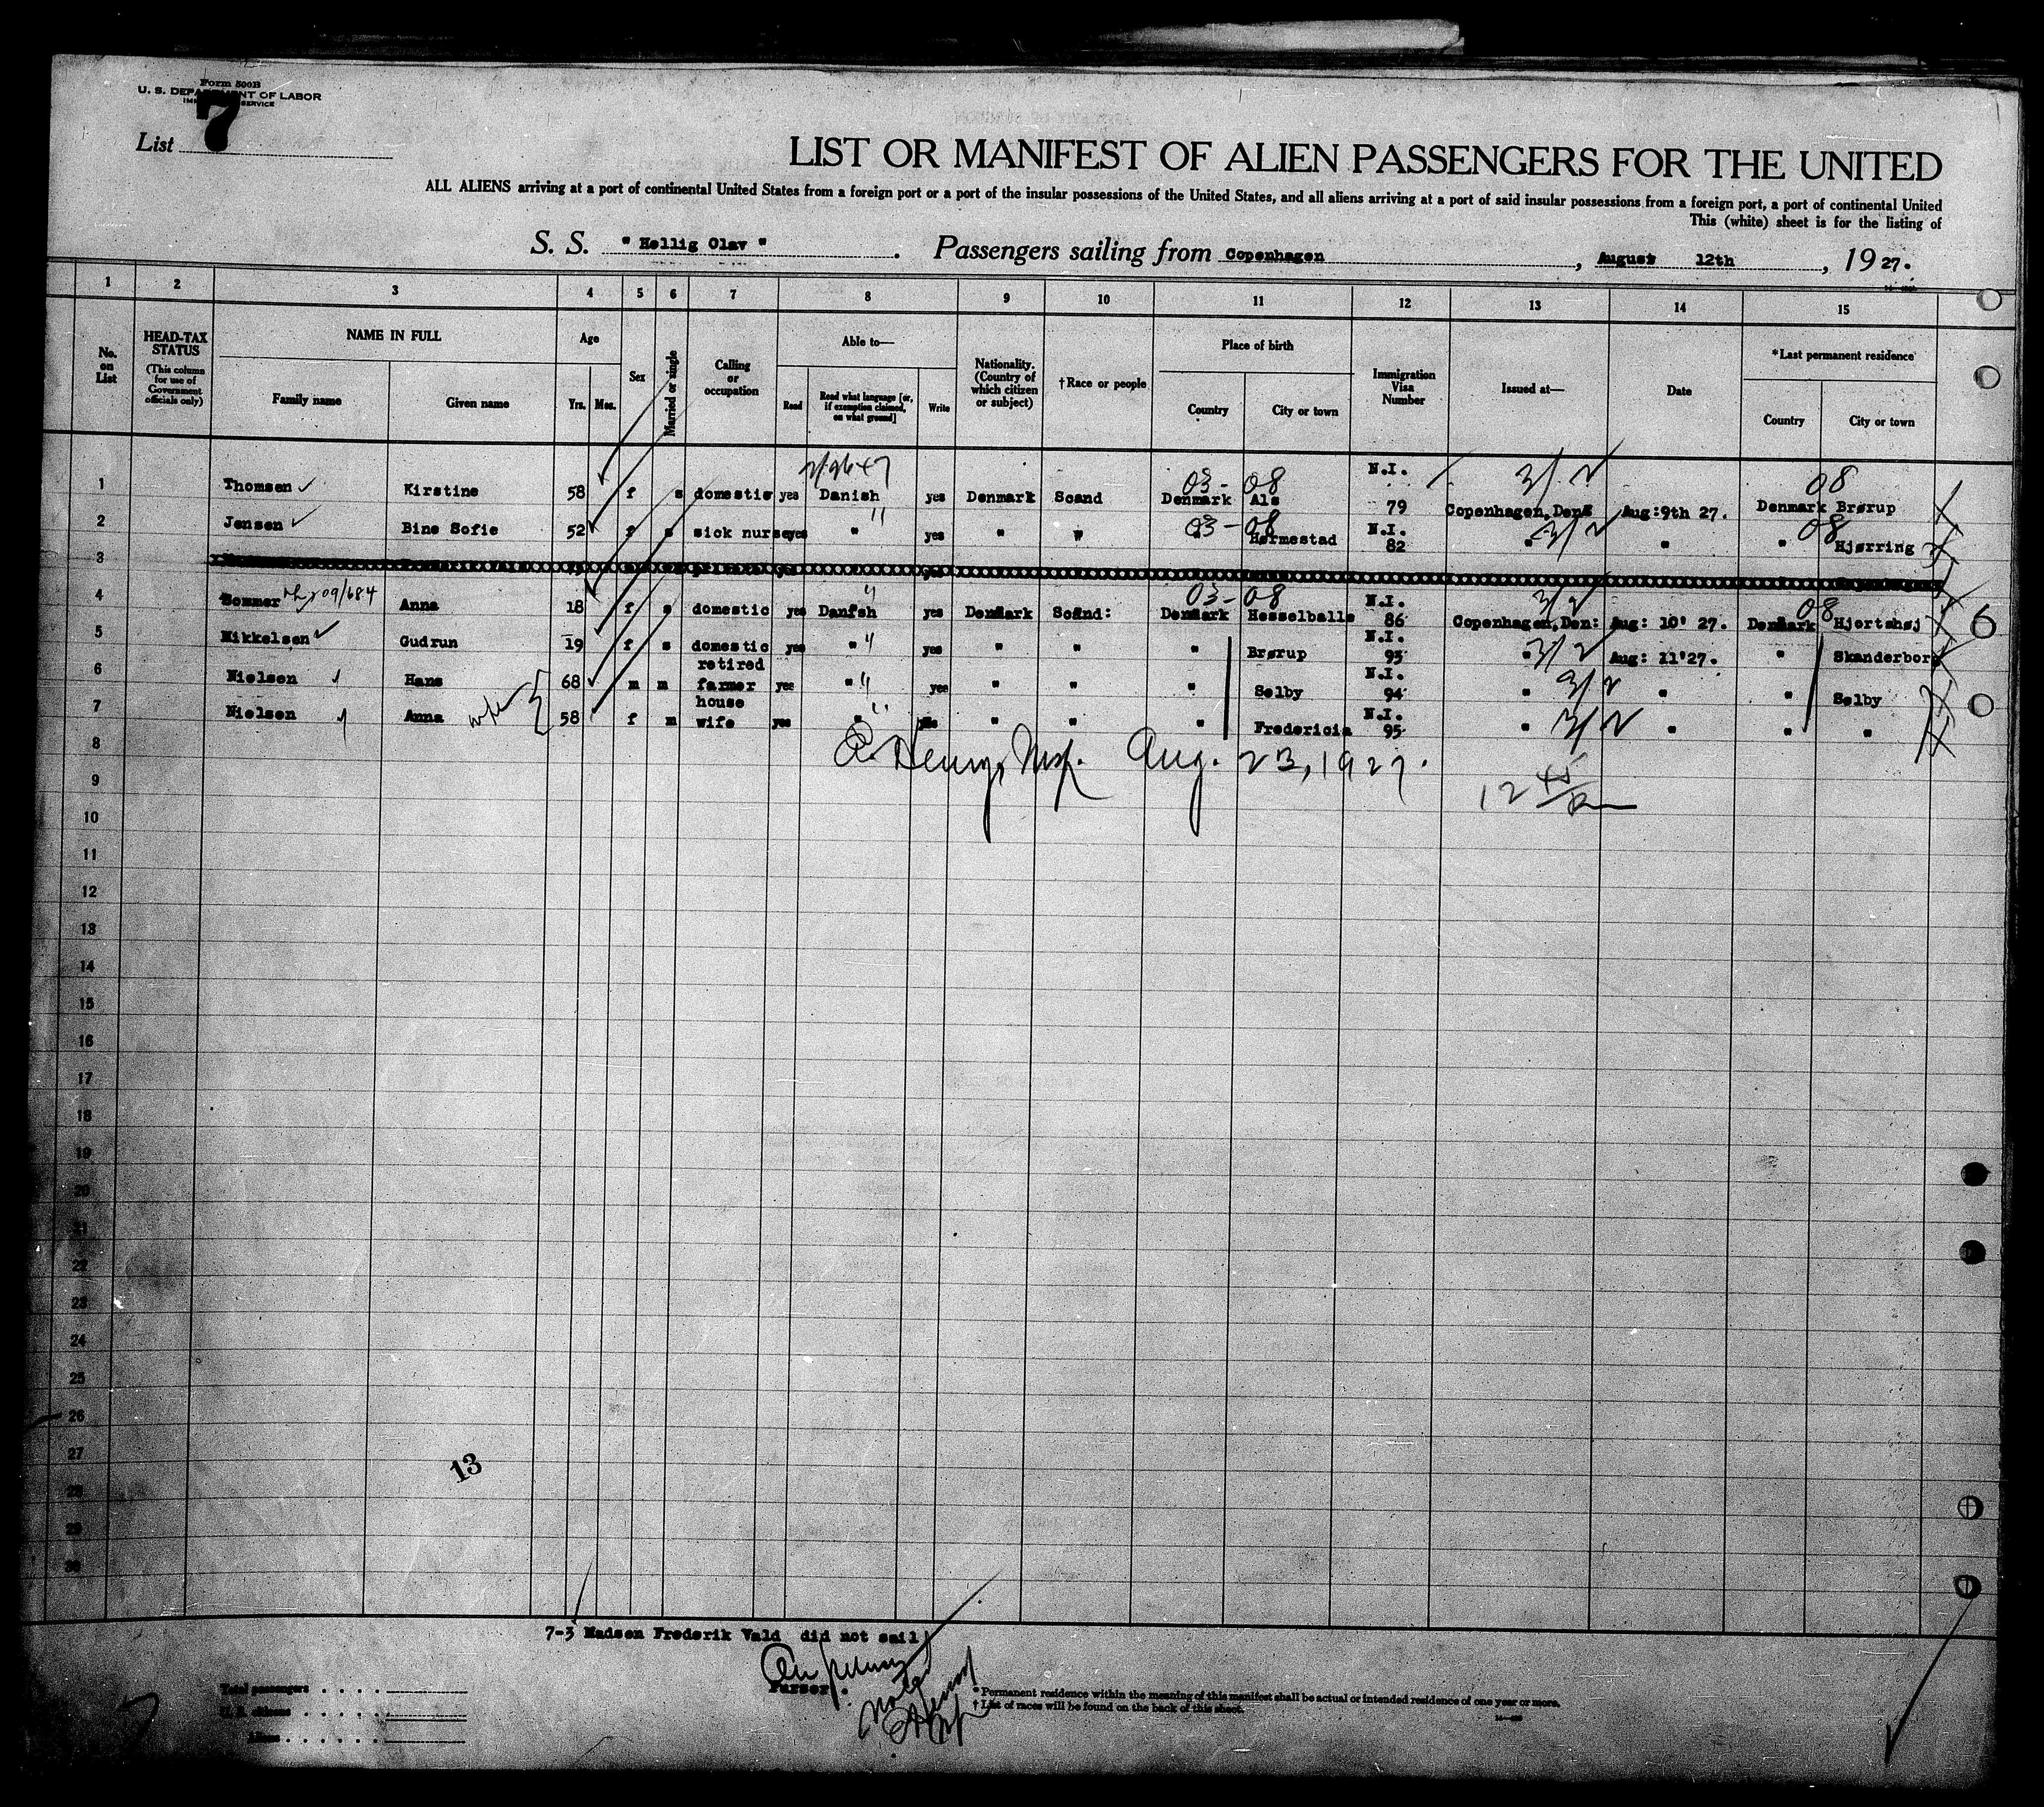 Form 500B
U. S. DEPARTMENT OF LABOR
IMMIGRATION SERVICE
List 7
LIST OR MANIFEST OF ALIEN PASSENGERS FOR THE UNITED
ALL ALIENS arriving at a port of continental United States from a foreign port or a port of the insular possessions of the United States, and all aliens arriving at a port of said insular possessions from a foreign port, a port of continental United
This (white) sheet is for the listing of
S. S. " Hellig Olav " . Passengers sailing from Copenhagen , August 12th , 1927.
1 2 3 4 5 6 7 8 9 10 11 12 13 14 15
No. on List
HEAD-TAX STATUS (This column for use of Government officials only)
NAME IN FULL Family name Given name
Age Yrs. Mos.
Sex
Married or single
Calling or occupation
Able to— Read Read what language [or, if exemption claimed, on what ground] Write
Nationality. (Country of which citizen or subject)
†Race or people
Place of birth Country City or town
Immigration Visa Number
Issued at—
Date
*Last permanent residence Country City or town
03-08 3/2 08
1 Thomsen Kirstine 58 f s domestic yes Danish yes Denmark Scand Denmark Als N.I. 79 Copenhagen, Den: Aug:9th 27. Denmark Brørup
03-08 3/2 08
2 Jensen Bine Sofie 52 f s sick nurse yes " yes " " " Hørmestad N.I. 82 " " " Hjørring
3
03-08 3/2 08
4 Sommer 09/684 Anna 18 f s domestic yes Danish yes Denmark Scand: Denmark Hesselballe N.I. 86 Copenhagen, Den: Aug: 10' 27. Denmark Hjortshøj 6
5 Mikkelsen Gudrun 19 f s domestic yes " yes " " " Brørup N.I. 93 " 3/2 Aug: 11'27. " Skanderborg
6 Nielsen Hans 68 m m retired farmer yes " yes " " " Sølby N.I. 94 " 3/2 " " Sølby
7 Nielsen Anna wife 58 f m house wife yes " " " " Fredericia N.I. 95 " 3/2 " " "
8
Henry, Insp. Aug. 23, 1927.
9
12 45
10
11
12
13
14
15
16
17
18
19
20
21
22
23
24
25
26
27
13
28
29
30
7-3 Madsen Frederik Vald did not sail
Purser.
Total passengers . . . .
U. S. citizens . . . . .
Aliens . . . . . .
* Permanent residence within the meaning of this manifest shall be actual or intended residence of one year or more.
† List of races will be found on the back of this sheet.